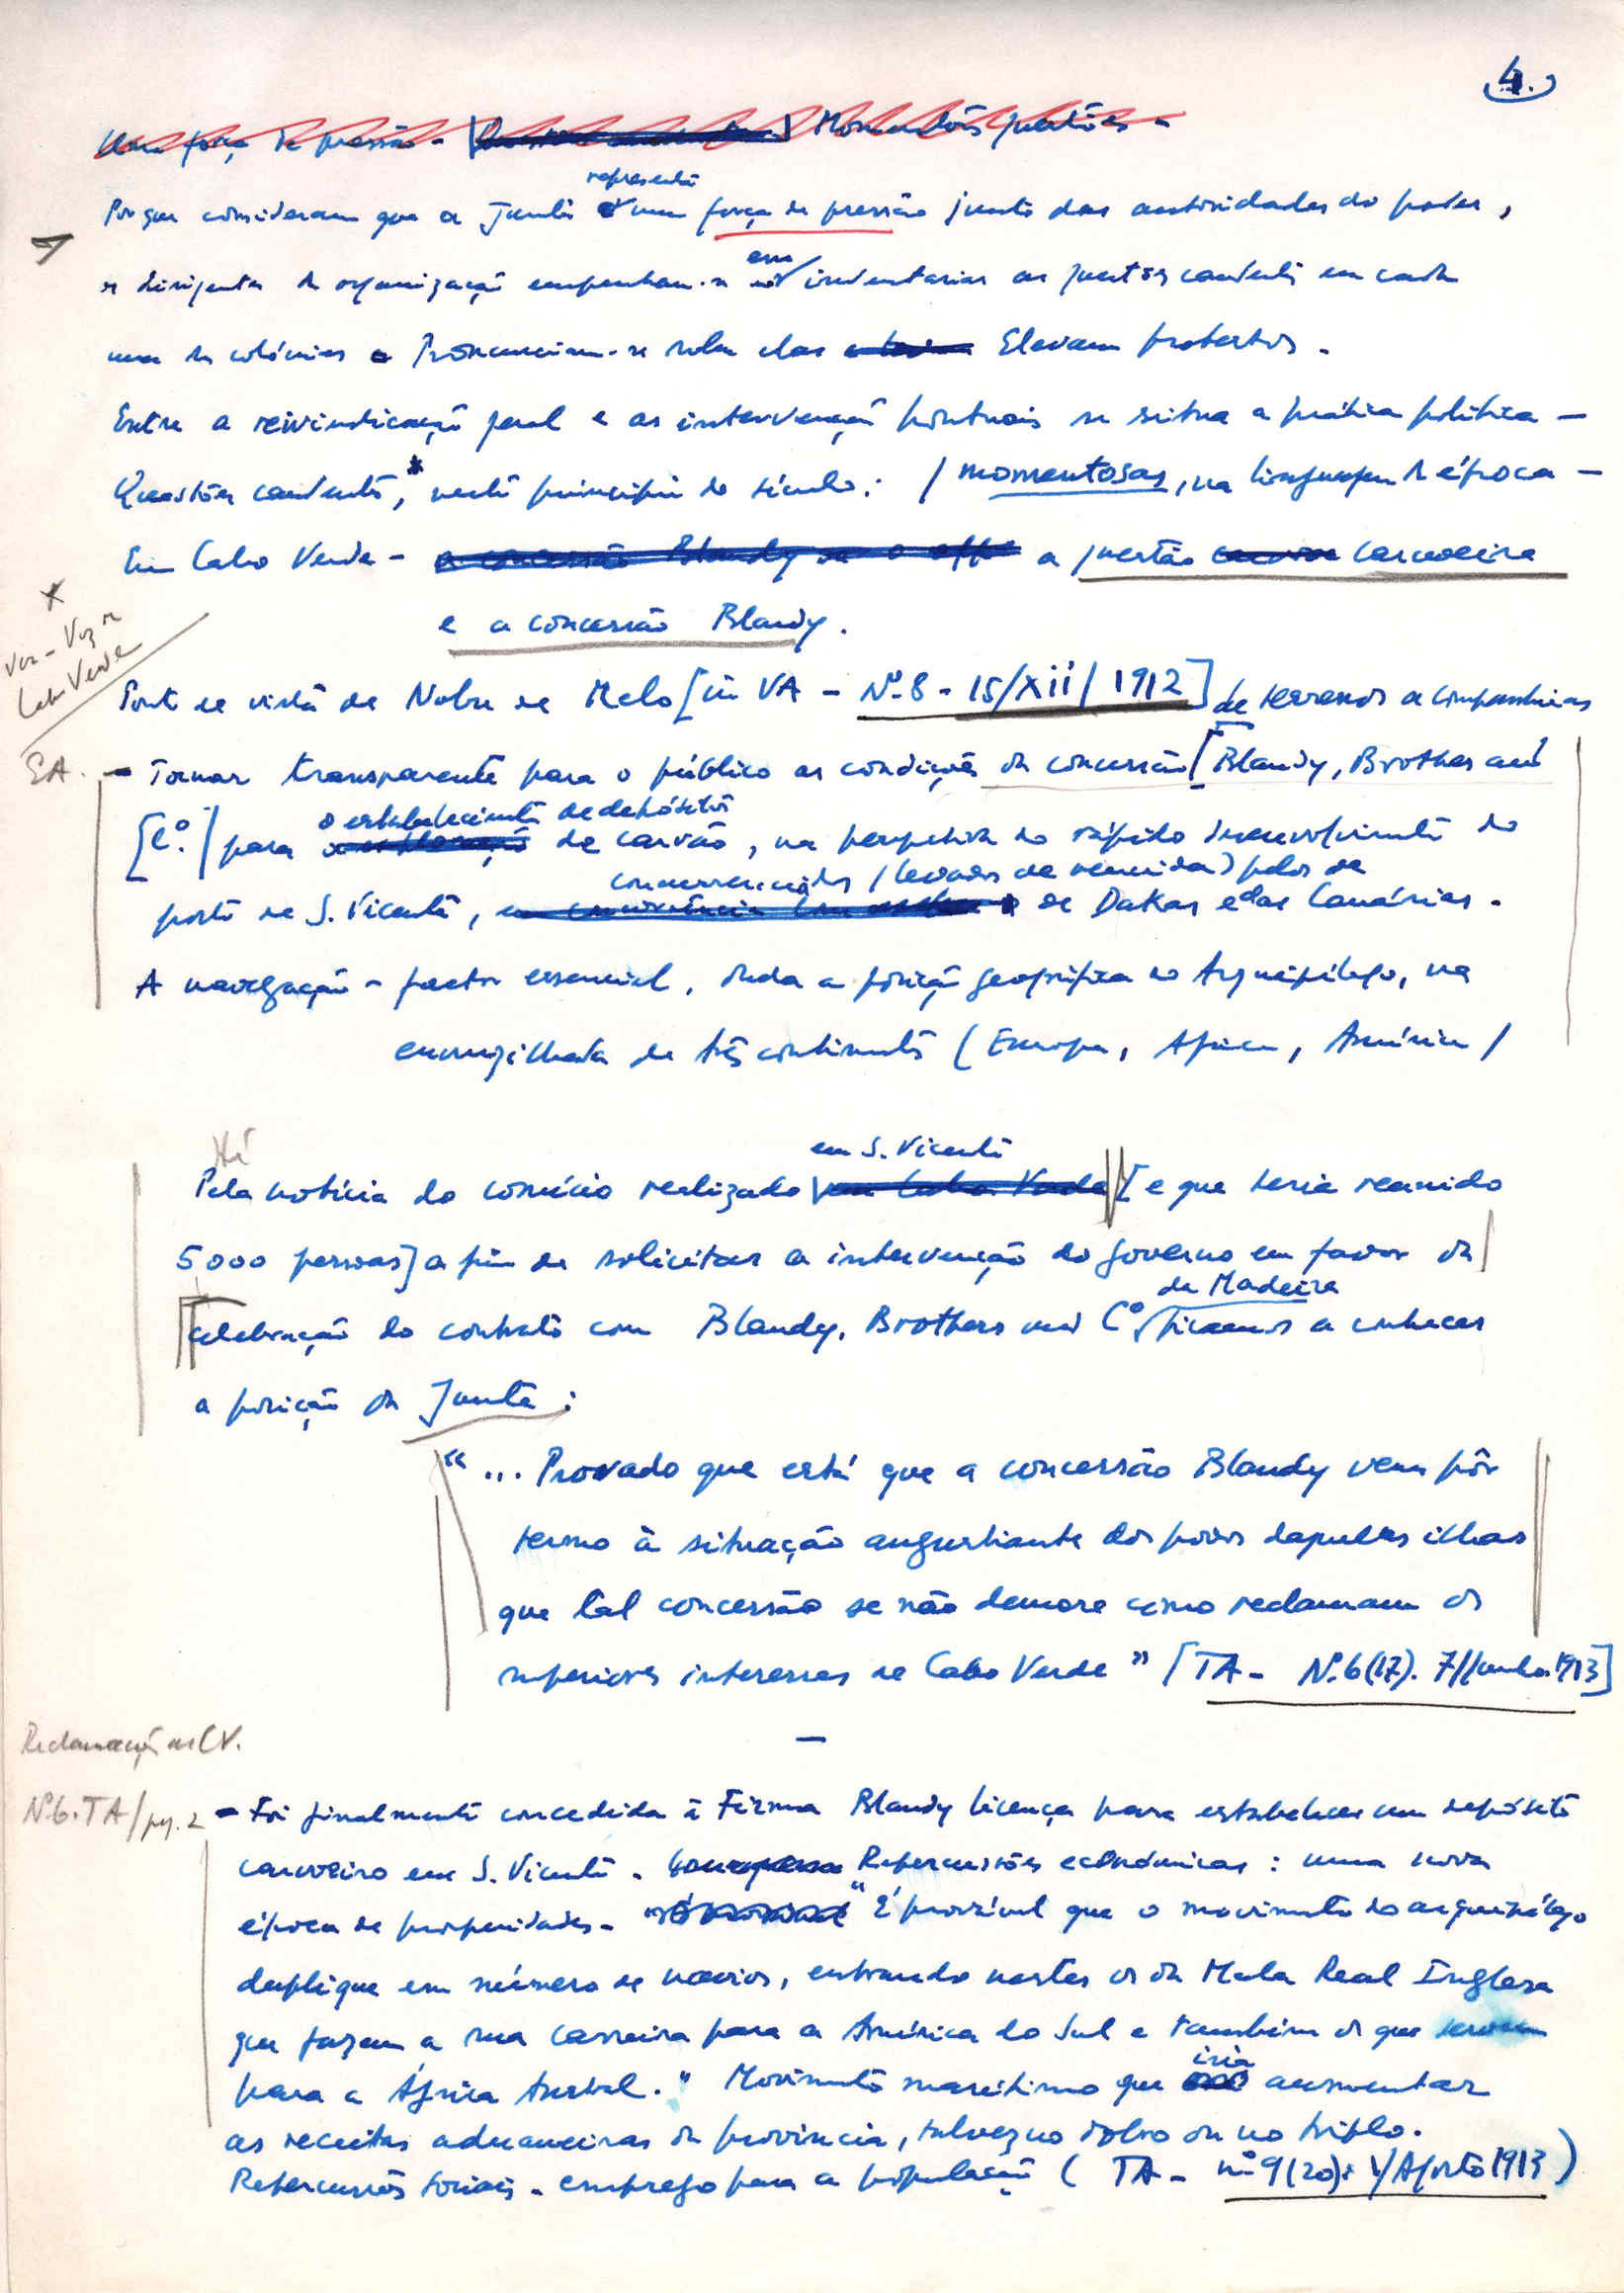 4.
Uma força de pressão - Momentosas questões -
representa
Porque consideram que a Junta é uma força de pressão junto das autoridades do poder,
os dirigentes da organização empenham-se em inventariar as questões candentes em cada
uma das colónias e Pronunciam-se sobre elas Elevam protestos.
Entre a reivindicação geral e as intervenções pontuais se situa a prática política -
Questões candentes, neste princípio do século: / momentosas, na linguagem da época -
Em Cabo Verde - a concessão Blandy a questão carvoeira
e a concessão Blandy.
x
Ver - Voz de
Cabo Verde
Ponto de vista de Nobre de Melo [in VA - Nº 8 - 15/XII/1912] de terrenos a companhias
EA. - Tornar transparente para o público as condições da concessão [Blandy, Brothers and
o estabelecimento de depósitos
[Cº.] para de carvão, na perspetiva do rápido desenvolvimento do
concorrenciados (levados de vencida) pelos de
porto de S. Vicente, de Dakar e das Canárias.
A navegação - factor essencial, dada a posição geográfica do Arquipélago, na
encruzilhada de três continentes (Europa, Africa, América)
Há
em S. Vicente
Pela notícia do comício realizado em Cabo Verde [e que teria reunido
5000 pessoas] a fim de solicitar a intervenção do governo em favor da
da Madeira
celebração do contrato com Blandy, Brothers and Cº ficamos a conhecer
a posição da Junta:
"... Provado que está que a concessão Blandy vem pôr
termo à situação angustiante dos povos daquelas ilhas
que tal concessão se não demore como reclamam os
superiores interesses de Cabo Verde" [TA - Nº 6 (17). 7/Junho.1913]
Reclamação de CV.
Nº 6. TA/pg. 2 - Foi finalmente concedida à Firma Blandy licença para estabelecer um depósito
carvoeiro em S. Vicente. Repercussões económicas: uma nova
época de prosperidades - "É provável que o movimento do arquipélago
duplique em número de navios, entrando nestes os da Mala Real Inglesa
que fazem a sua carreira para a América do Sul e também os que servem
para a África Austral." Movimento marítimo que iria aumentar
as receitas aduaneiras da província, talvez no dobro ou no triplo.
Repercussões sociais - emprego para a população (TA - nº 9 (20): 1/Agosto 1913)